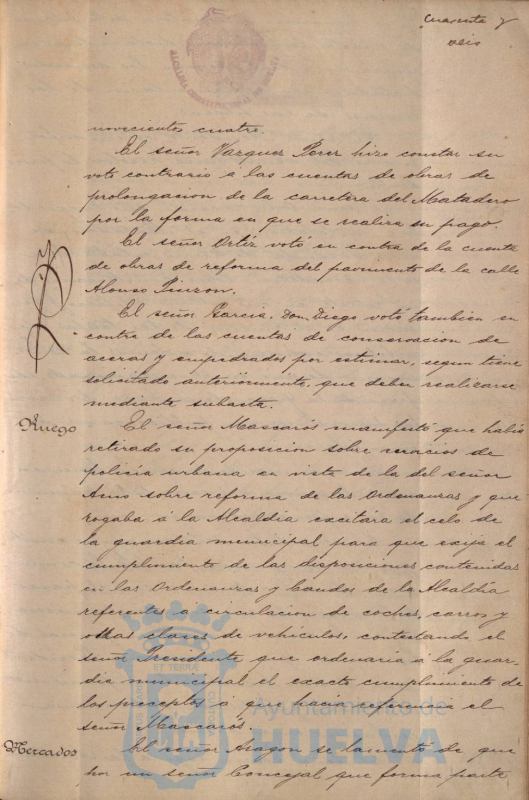 Cuarenta y
seis
novecientos cuatro.
El señor Vazquez Perez hizo constar su
voto contrario á las cuentas de obras de
prolongacion de la carretera del Matadero
por la forma en que se realiza su pago.
El señor Ortiz votó en contra de la cuenta
de obras de reforma del pavimento de la calle
Alonso Pinzon.
El señor Garcia, Don Diego votó tambien en
contra de las cuentas de conservacion de
aceras y empedrados por estimar, segun tiene
solicitado anteriormente, que deben realizarse
mediante subasta.
Ruego
El señor Mascarós manifestó que habia
retirado su proposicion sobre servicios de
policia urbana en vista de la del señor
Amo sobre reforma de las Ordenanzas y que
rogaba á la Alcaldia excitára el celo de
la guardia municipal para que exija el
cumplimiento de las disposiciones contenidas
en las Ordenanzas y bandos de la Alcaldia
referentes a circulacion de coches, carros y
otras clases de vehiculos, contestando el
señor Presidente que ordenaria á la guar-
dia municipal el exacto cumplimiento de
los preceptos á que hacia referencia el
señor Mascarós.
Mercados
El señor Aragon se lamentó de que
por un señor Concejal que forma parte
Ayuntamiento de
HUELVA